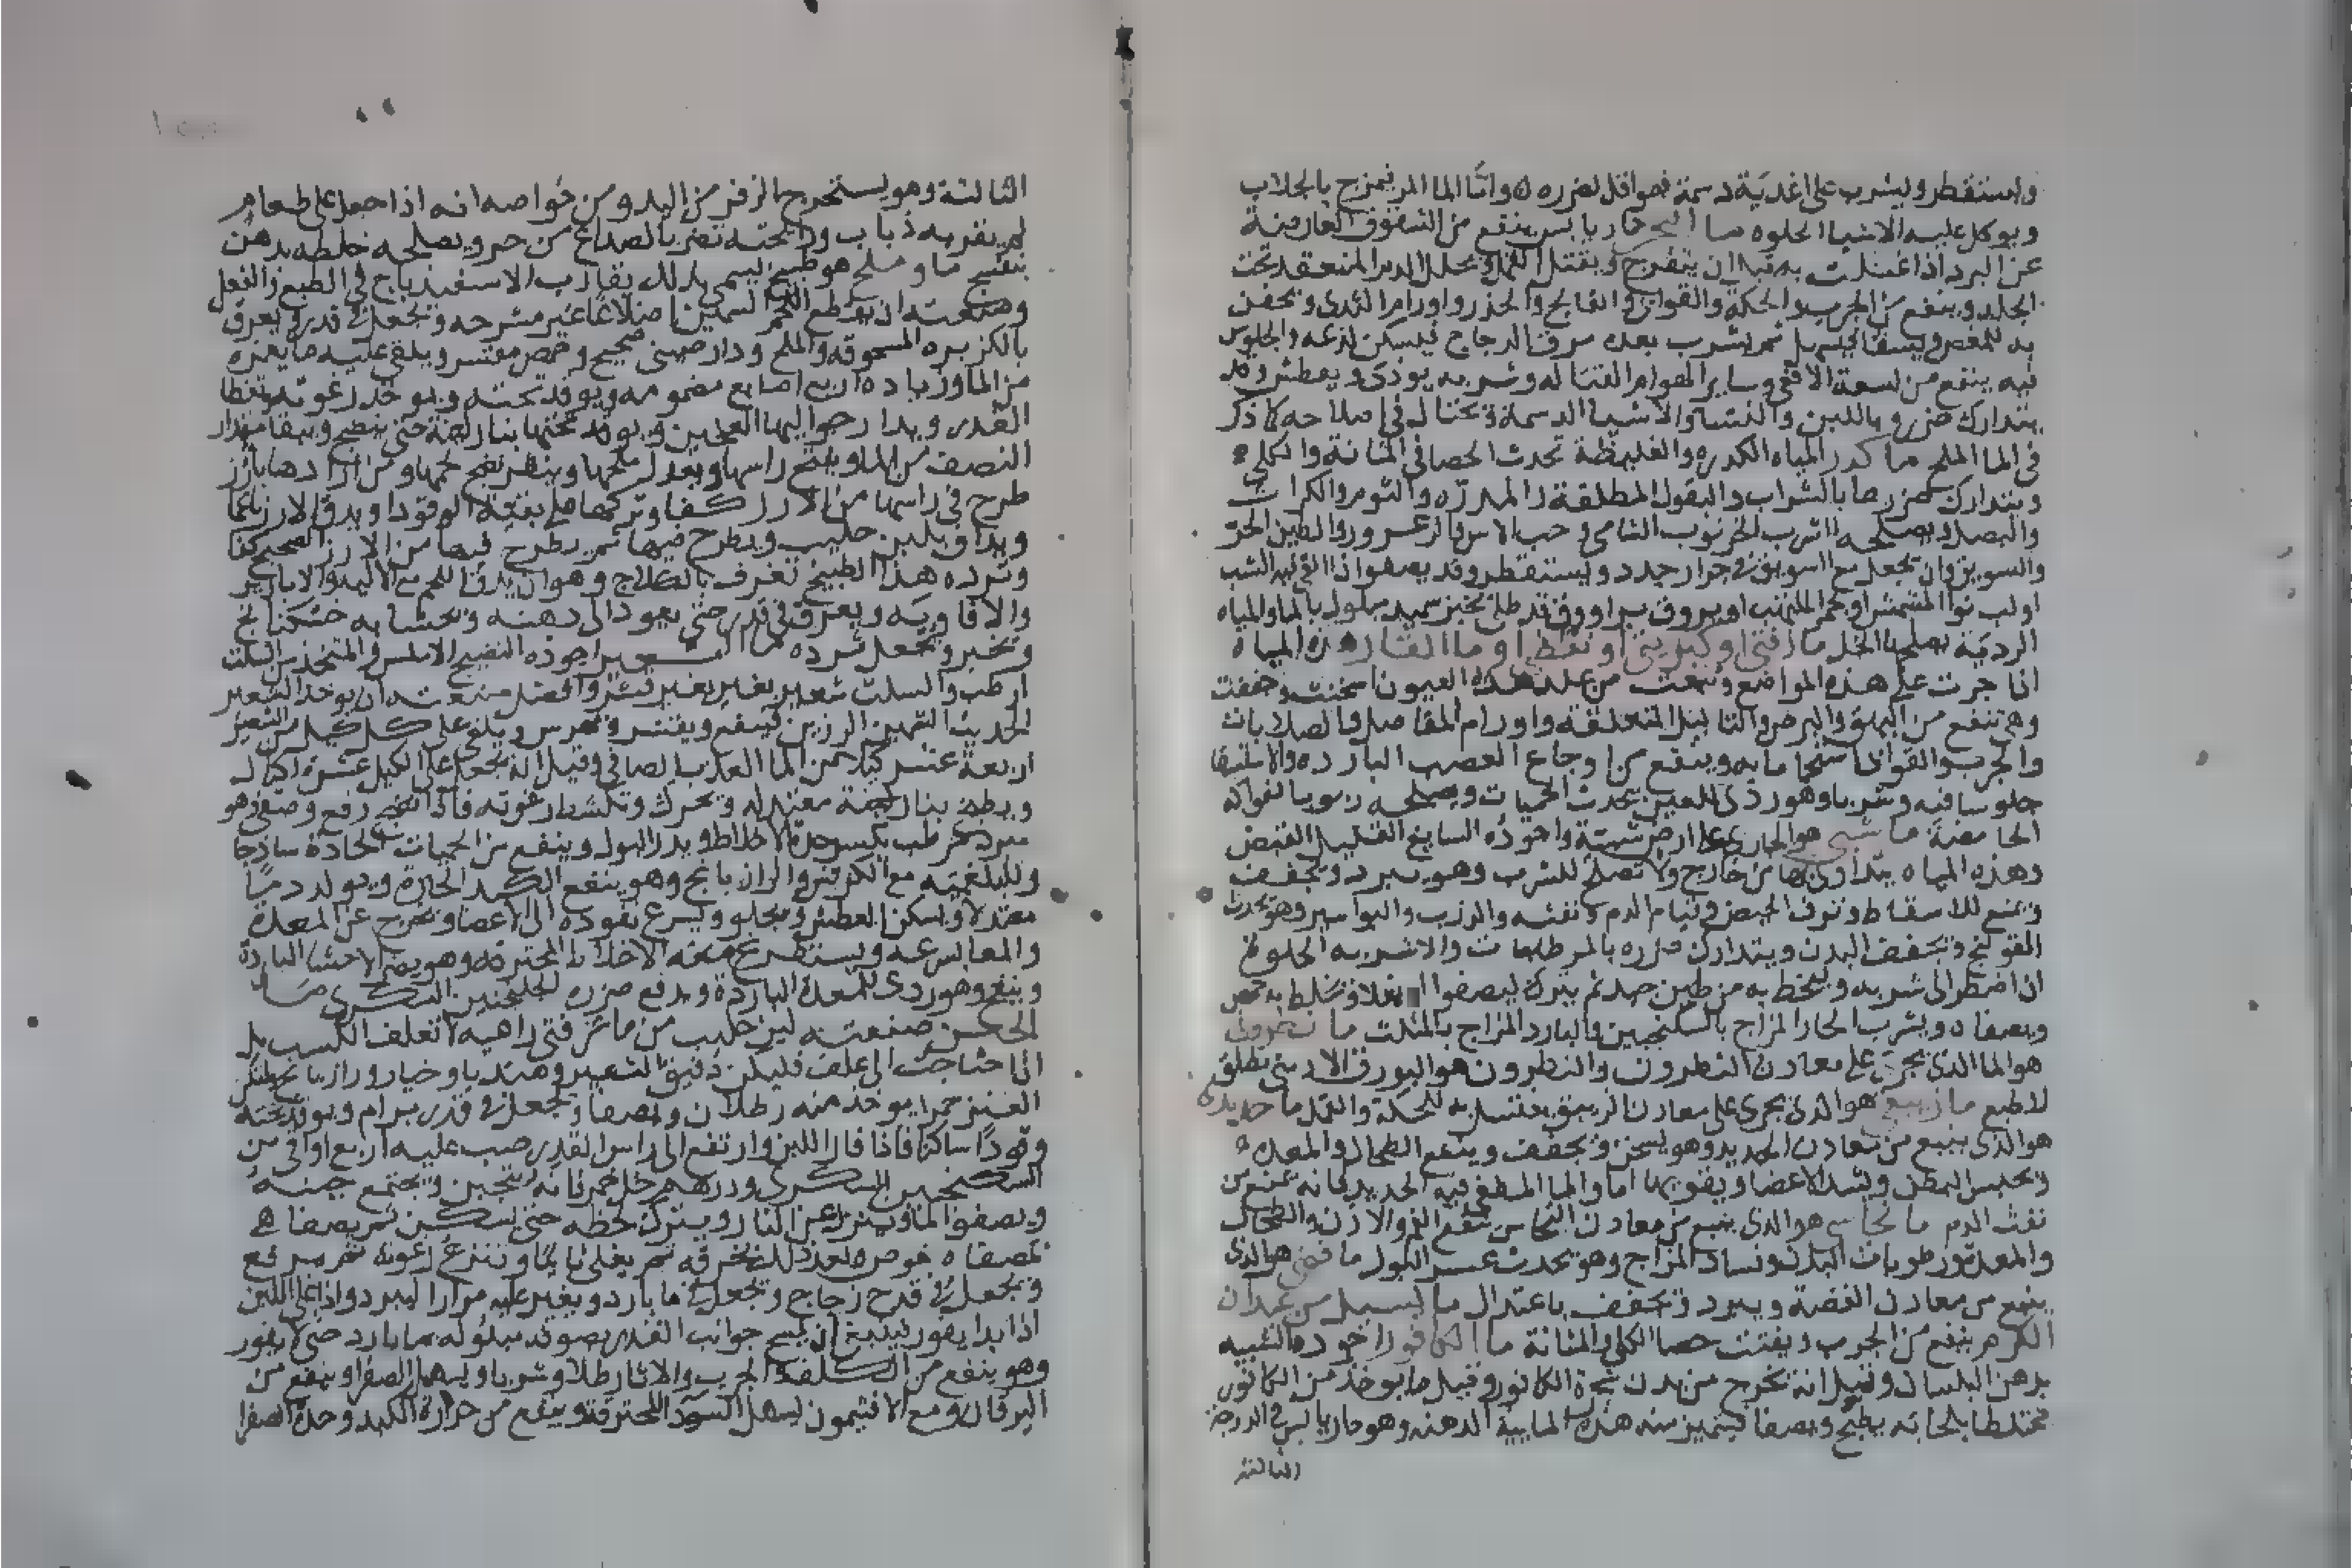 ويستقطر ويشرب على اغدية دسمة فهو اقل لضرره واما الما المر فيمزج بالجلاب
ويوكل عليه الاشيا الحلوه ما البحر حار يابس ينفع من الشقوق العارضة
عن البرد اذا غسلت به قبل ان يتقرح ويقتل القمل ويحلل الدم المنعقد تحت
الجلد وينفع من الجرب والحكة والقوابي والفالج والخدر واورام الثدى ويحقن
به للمغص ويسقا فيسهل ثم يشرب بعده مرق الدجاج فيسكن لذعه والجلوس
فيه ينفع من لسعة الافعى وساير الهوام القتاله وشربه يوذى ويعطش وقد
يتدارك ضرره باللبن والنشا والاشيا الدسمة ويحتال فى اصلاحه كما ذكر
فى الما المالح ما كدر المياه الكدره والغليظة تحدث الحصا فى المثانة والكلى
ويتدارك ضررها بالشراب والبقول المطلقة المدرة والثوم والكراث
والبصل ويصلحه الشرب الخرنوب الشامى وحب الاس والزعرور والطين الحر
والسويق وان تجعل مع السويق فى جرار جدد ويستقطر وقد يصفوا اذا القى فيه الشب
او لب نوا المشمش او جمر الملتهب او يروق مرا ووق قد طلى بخبز سميد مبلول بالما والمياه
الردية يصلحها الخل ما زفتى او كبريتى او نفطى او ما القار هذه المياه
اذا جرت على هذه المواضع ونبعت من هذه العيون اسخنت وجففت
وهى تنفع من البهق والبرص والثاليل المتعلقة واورام المفاصل والصلابات
والجرب والقوابي استحماما به وينفع من اوجاع العصب البارده والاستسقا
جلوسا فيه وشربا وهو ردى للعين يحدث الحميات ويصلحه ربوب الفواكه
الحامضة ما شبى هو الجارى على ارض شبية واجوده السايغ القليل القبض
وهذه المياه يتداوى بها من خارج ولا تصلح للشرب وهو يبرد ويجفف
ويمنع للاسقاط ونزف الحيض وقيام الدم ونفثه والذرب والبواسير وهو يحدث
القولنج ويجفف البدن ويتدارك ضرره بالمرطبات والاشربه الحلوة
ان اضطر الى شربه ويخلط به من طين حر ثم يترك ليصفوا
ويصفا ويشرب الحار المزاج بالسكنجبين والبارد المزاج بالمثلث ما نطرونى
هو الما الذى يجرى على معادن النطرون والنطرون هو البورق الارمنى يطلق
للطبع ما زيبقى هو الذى يجرى على معادن الزيبق يغتسل به للحكة والقمل ما حديدى
هو الذى ينبع من معادن الحديد وهو يسخن ويجفف وينفع الطحال والمعده
ويحبس البطن ويشد الاعضا ويقويها اما والما المطفى فيه الحديد فانه يمنع من
نفث الدم ما نحاسى هو الذى ينبع من معادن النحاس ينفع الفم والاذن والطحال
والمعدة ورطوبات البدن وفساد المزاج وهو يحدث عسر البول ما فضى هو الذى
ينبع من معادن الفضة ويبرد ويجفف باعتدال ما يسيل من عيدان
الكرم ينفع من الجرب ويفتت حصا الكلى والمثانة ما الكافور اجوده الشبيه
بدهن البلسان وقيل انه يخرج من بدن شجرة الكافور وقيل ما يوخذ من الكافور
مختلطا بلحائه يطبخ ويصفا فيتميز منه هذه المايية الدهنه وهو حار يابس فى الدرجة
الثالثة
الثالثة وهو يستخرج الزفر من اليد ومن خواصه انه اذا جعل على طعام
لم يقربه ذباب ورايحته تضر بالصداع من حر ويصلحه خلطه بدهن
بنفسج ما وملح هو طبيخ يسمى بذلك يقارب الاسفيدباج فى الطبع والفعل
وصنعته ان يقطع اللحم السمين اضلاعا غير مشرحه ويجعل فى قدر ويعرق
بالكزبره المسحوقه والملح ودارصينى صحيح وحمص مقشر ويلقى عليه ما يغمره
من الما وزياده اربع اصابع مضمومه ويوقد تحته ويوخذ رغوته وتغطا
القدر ويدار حواليها العجين ويوقد تحتها بنار لينة حتى ينضج ويبقا مقدار
النصف من الما ويفتح راسها ويعدل ملحها وينظر نضج لحمها ومن ارادها بارز
طرح فى راسها من الارز كفا وتركها على بقية الوقود او يدق الارز ناعما
ويداف بلبن حليب ويطرح فيها ثم يطرح فيها من الارز الصحيح كفا
وثرده هذا الطبيخ تعرف بالصلاح وهو ان يدق اللحم مع الاليه والابازير
والافاويه ويعرق فى قدر حتى يعود الى دهنه ويحشا به خشكنانج
ويخبز ويجعل ثرده ما الشعير اجوده النضيج الاملس والمتخذ من السلت
ارطب والسلت شعير بغير قشر وافضل صنعته ان يوخذ الشعير
الحديث السمين الرزين فينقع ويقشر ويهرس ويلقى على كل كيل من الشعير
اربعة عشر كيلا من الما العذب الصافى وقيل انه يجعل على الكيل عشرة اكيال
ويطبخ بنار لينة معتدله ويحرك وتكشط رغوته فاذا انضج رفع وصفى وهو
مبرد مرطب يكسر حدة الاخلاط ويدر البول وينفع من الحميات الحادة ساذجا
وللبلغميه مع الكرفس والرازيانج وهو ينفع الكبد الحارة ويولد دما
معتدلا ويسكن العطش ويجلو ويسرع نفوذه الى الاعضا ويخرج عن المعدة
والمعا بسرعه ويستفرغ معه الاخلاط المحترقه وهو يضر الاحشا الباردة
وينفخ وهو ردى للمعدة الباردة ويدفع ضرره الجلنجبين السكرى ما
الجبن صنعته لبن حليب من ماعز فتى راعيه لا تعلف الكسب بل
اذا احتاجت الى علف فليكن دقيق الشعير وهندبا وخيار ورازيانج وليكن
العنز حمرا يوخذ منه رطلان ويصفا ويجعل فى قدر برام ويوقد تحته
وقودا ساكنا فاذا فار اللبن وارتفع الى راس القدر صب عليه اربع اواقى من
السكنجبين السكرى ودرهم خل خمر فانه يتجبن ويجتمع جبنه
ويصفوا الما وينزل عن النار ويترك لحظه حتى يسكن ثم يصفا فى
مصفاه خوص وبعد ذلك بخرقه ثم يغلى ثانيا وتنزع رغوته ثم يرفع
ويجعل فى قدح زجاج ويجعل فى ما بارد ويغير عليه مرارا ليبرد واذا غلى اللبن
اذا بدا يفور فينبغى ان يمسح جوانب القدر بصوفه مبلوله بما بارد حتى لا يفور
وهو ينفع من الكلف والجرب والاثار طلا وشربا ويسهل الصفرا وينفع من
اليرقان ومع الافتيمون يسهل السودا المحترقة وينفع من حرارة الكبد وحدة الصفرا